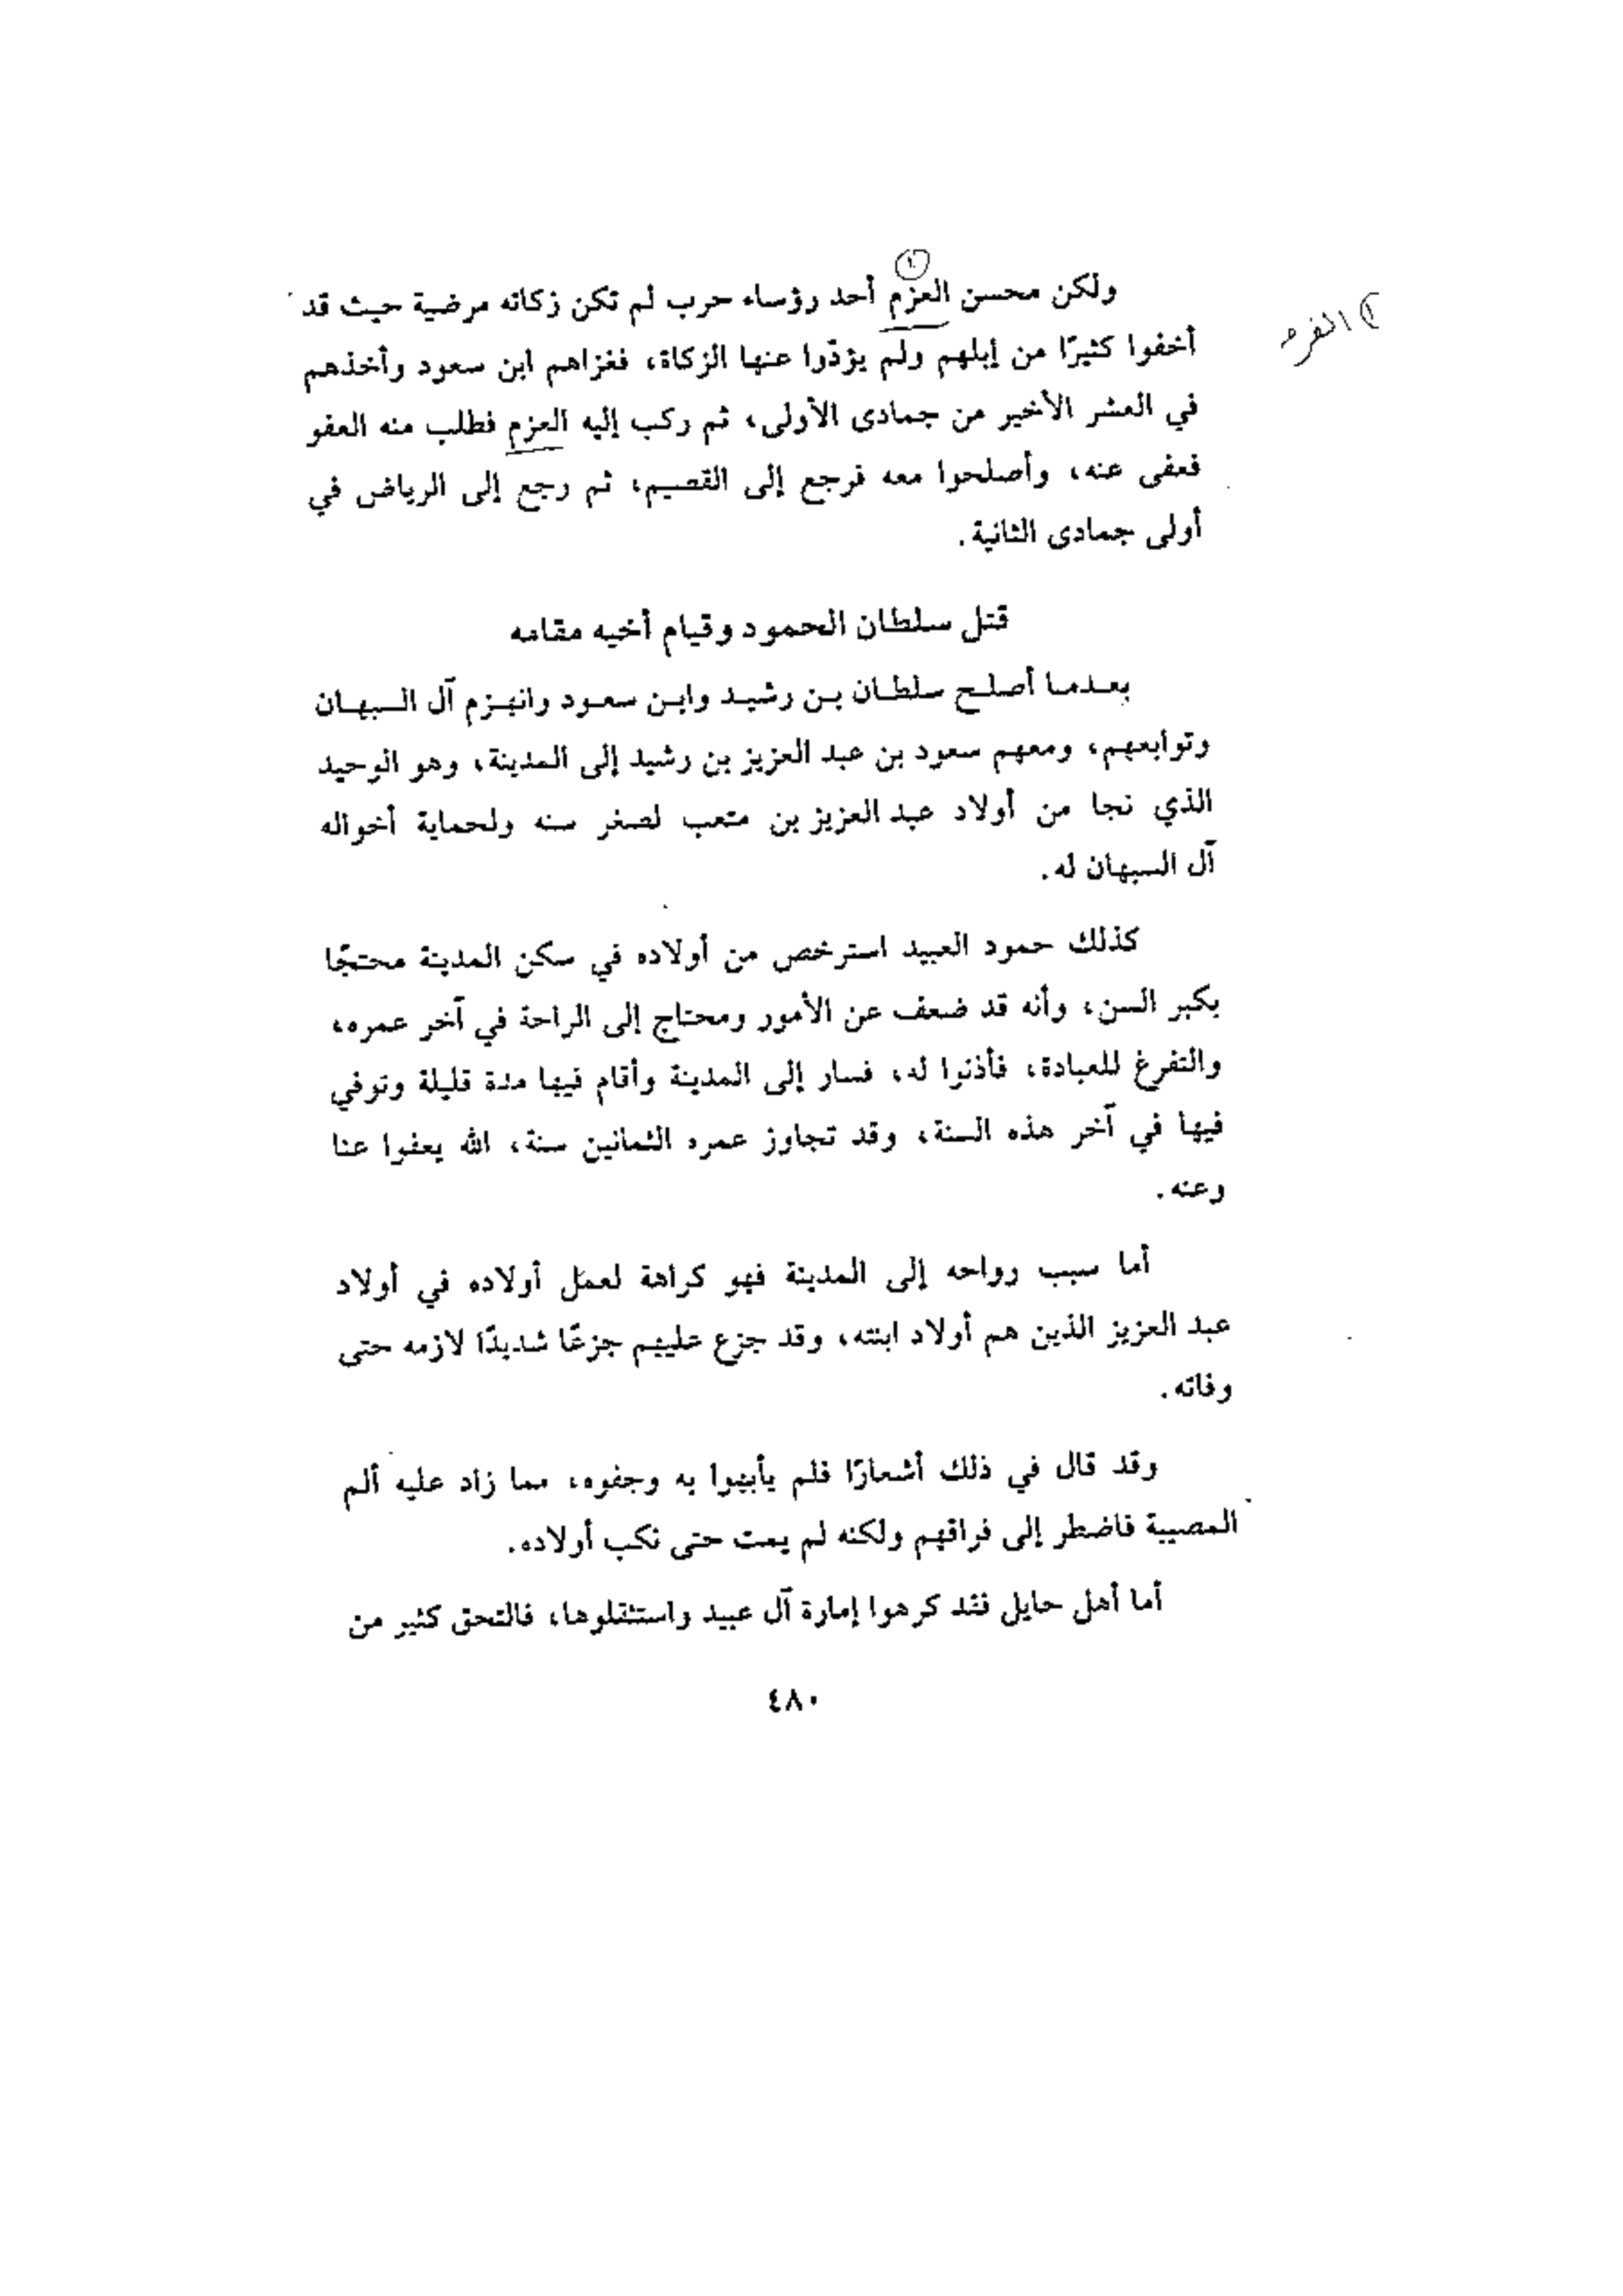 ولكن محسن العزم (١) أحد رؤساء حرب لم تكن زكاته مرضية حيث قد
١) الفرم
أخفوا كثيرًا من إبلهم ولم يؤدّوا عنها الزكاة، فغزاهم ابن سعود وأخذهم
في العشر الأخير من جمادى الأولى، ثم ركب إليه العزم فطلب منه العفو
فعفى عنه، وأصلحوا معه فرجع إلى القصيم، ثم رجع إلى الرياض في
أولى جمادى الثانية.
قتل سلطان الحمود وقيام أخيه مقامه
بعدما أصلح سلطان بن رشيد وابن سعود وانهزم آل السبهان
وتوابعهم، ومعهم سعود بن عبد العزيز بن رشيد إلى المدينة، وهو الوحيد
الذي نجا من أولاد عبد العزيز بن متعب لصغر سنه ولحماية أخواله
آل السبهان له.
كذلك حمود العبيد استرخص من أولاده في سكن المدينة محتجًا
بكبر السن، وأنه قد ضعف عن الأمور ومحتاج إلى الراحة في آخر عمره،
والتفرغ للعبادة، فأذنوا له، فسار إلى المدينة وأقام فيها مدة قليلة وتوفي
فيها في آخر هذه السنة، وقد تجاوز عمره الثمانين سنة، الله يعفوا عنا
وعنه.
أما سبب رواحه إلى المدينة فهو كراهة لعمل أولاده في أولاد
عبد العزيز الذين هم أولاد ابنته، وقد جزع عليهم جزعًا شديدًا لازمه حتى
وفاته.
وقد قال في ذلك أشعارًا فلم يأبهوا به وجفوه، مما زاد عليه ألم
المصيبة فاضطر إلى فراقهم ولكنه لم يمت حتى نكب أولاده.
أما أهل حايل فقد كرهوا إمارة آل عبيد واستثقلوها، فالتحق كثير من
٤٨٠